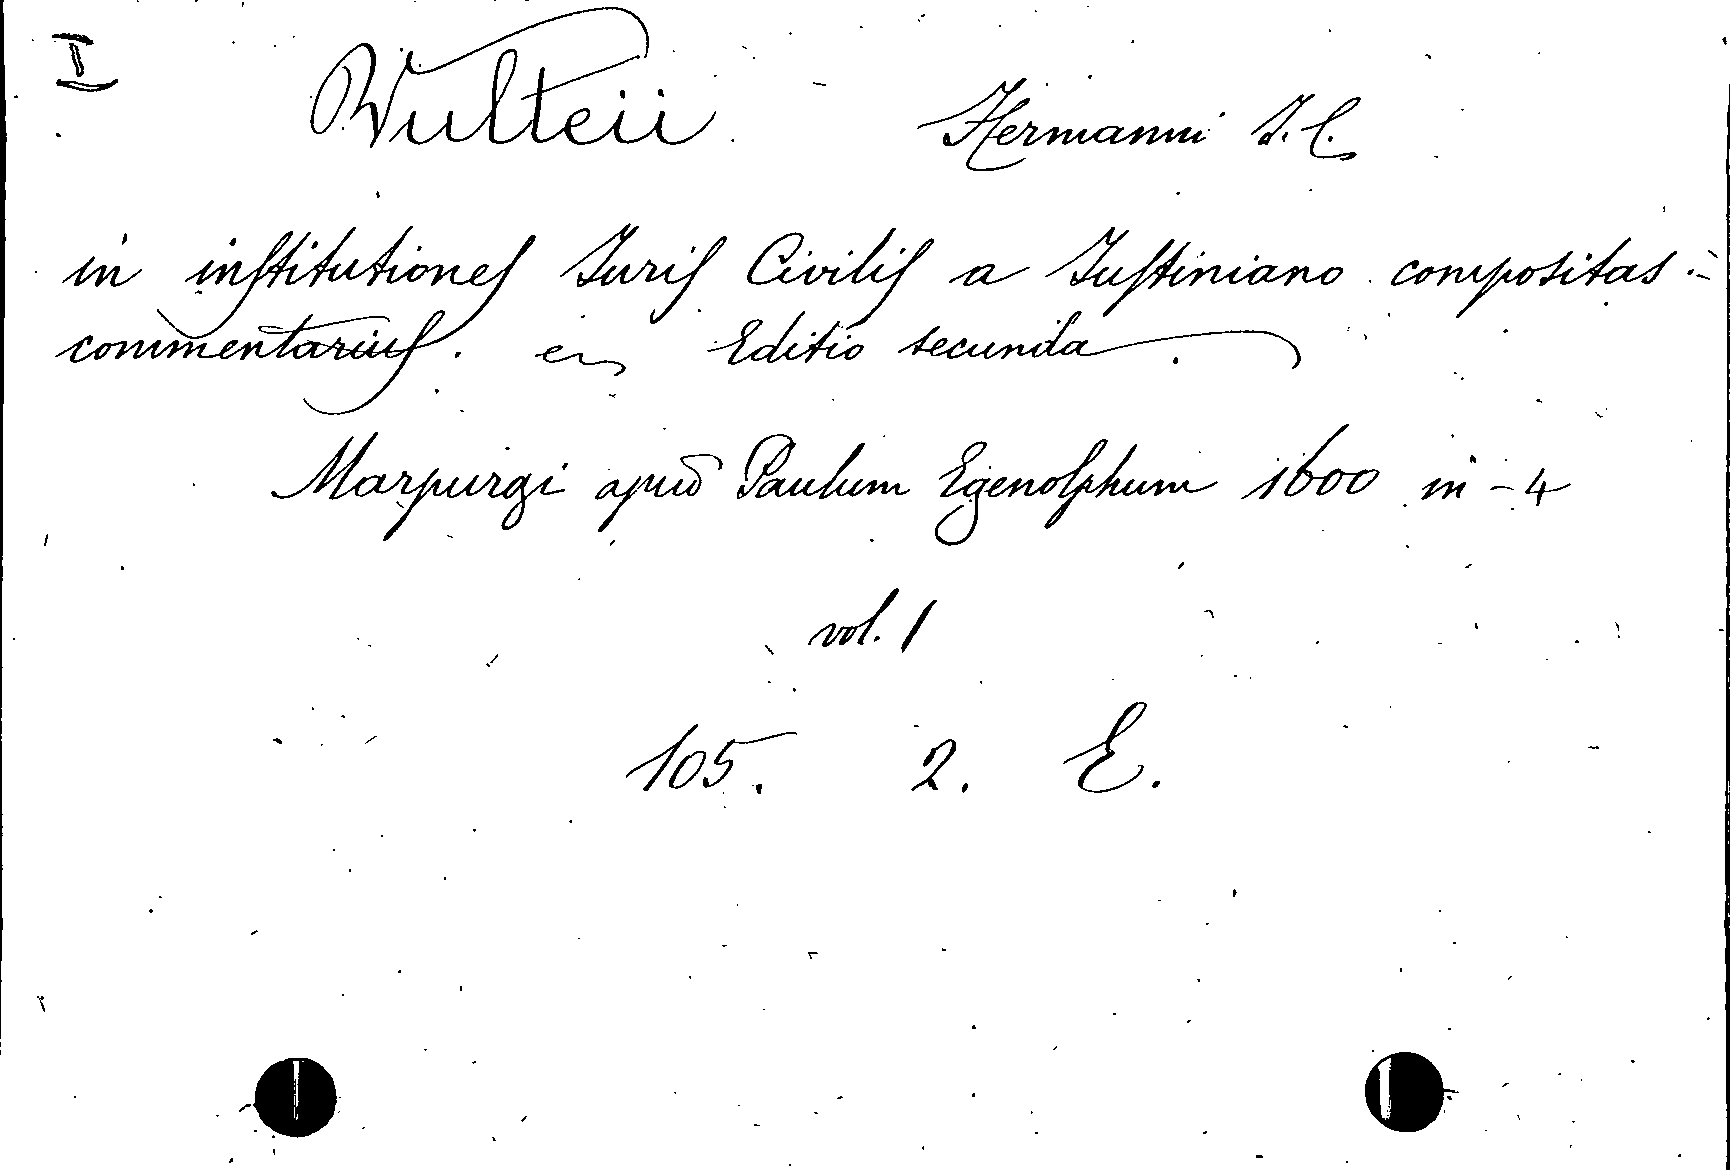 I
Wulteii Hermanni I. C.
in institutiones Iuris Civilis a Iustiniano compositas
commentarius. en Editio secunda.
Marpurgi apud Paulum Egenolphum 1600 in-4
vol. 1
105. 2. E.